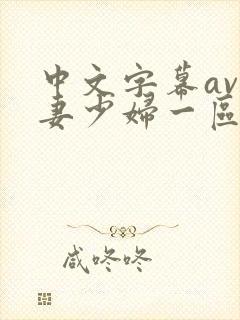 中文字幕av
妻少婦一區
咸咚咚